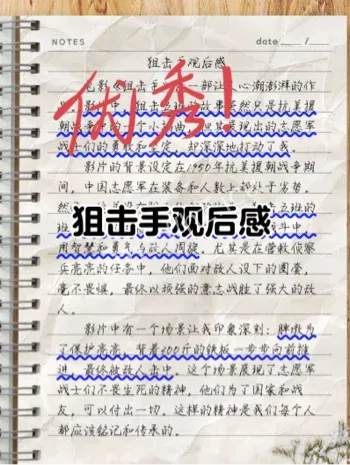 NOTES
date ___ / ___
狙击手观后感
电影《狙击手》是一部让人心潮澎湃的作
影片中,狙击五班的故事虽然只是抗美援
朝战争中的一个小插曲,但其展现出的志愿军
战士们的勇敢和坚定,却深深地打动了我。
影片的背景设定在1950年抗美援朝战争期
间,中国志愿军在装备和人数上都处于劣势,
五班的
斗中,
用智慧和勇气与敌人周旋。尤其是在营救侦察
兵亮亮的任务中,他们面对敌人设下的圈套,
毫不畏惧,最终以顽强的意志战胜了强大的敌
人。
影片中有一个场景让我印象深刻:胖墩为
了保护亮亮,背着200斤的铁板一步步向前推
进,最终被敌人击中。这个场景展现了志愿军
战士们不畏生死的精神,他们为了国家和战
友,可以付出一切。这样的精神是我们每个人
都应该铭记和传承的。
优秀!
狙击手观后感